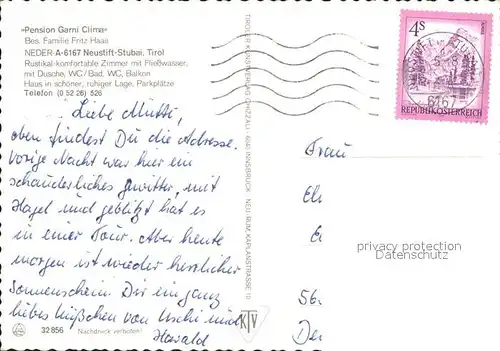 »Pension Garni Clima«
Bes. Familie Fritz Haas
NEDER-A-6167 Neustift-Stubai, Tirol
Rustikal-komfortable Zimmer mit Fließwasser,
mit Dusche, WC/Bad, WC, Balkon
Haus in schöner, ruhiger Lage, Parkplätze
Telefon (0 52 26) 526
Liebe Mutti,
oben findest Du die Adresse.
Vorige Nacht war hier ein
schauderliches Gewitter, mit
Hagel und geblitzt hat es
in einer Tour. Aber heute
morgen ist wieder herrlicher
Sonnenschein. Dir ein ganz
liebes Küßchen von Uschi und
Harald
32 856 Nachdruck verboten!
TIROLER KUNSTVERLAG CHIZZALI 6040 INNSBRUCK - NEU-RUM, KAPLANSTRASSE 10
KTV
4S
REPUBLIK ÖSTERREICH
6167
Frau
privacy protection
Datenschutz